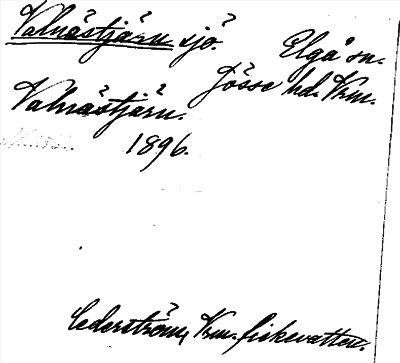 Valnästjärn sjö. Elgå sn.
Jösse hd. Vrm.
Valnästjärn.
1896.
Cederström, Vrm. fiskevatten.